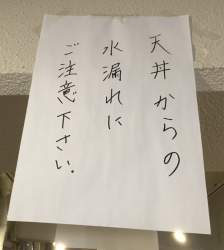 天井からの
水漏れに
ご注意下さい.